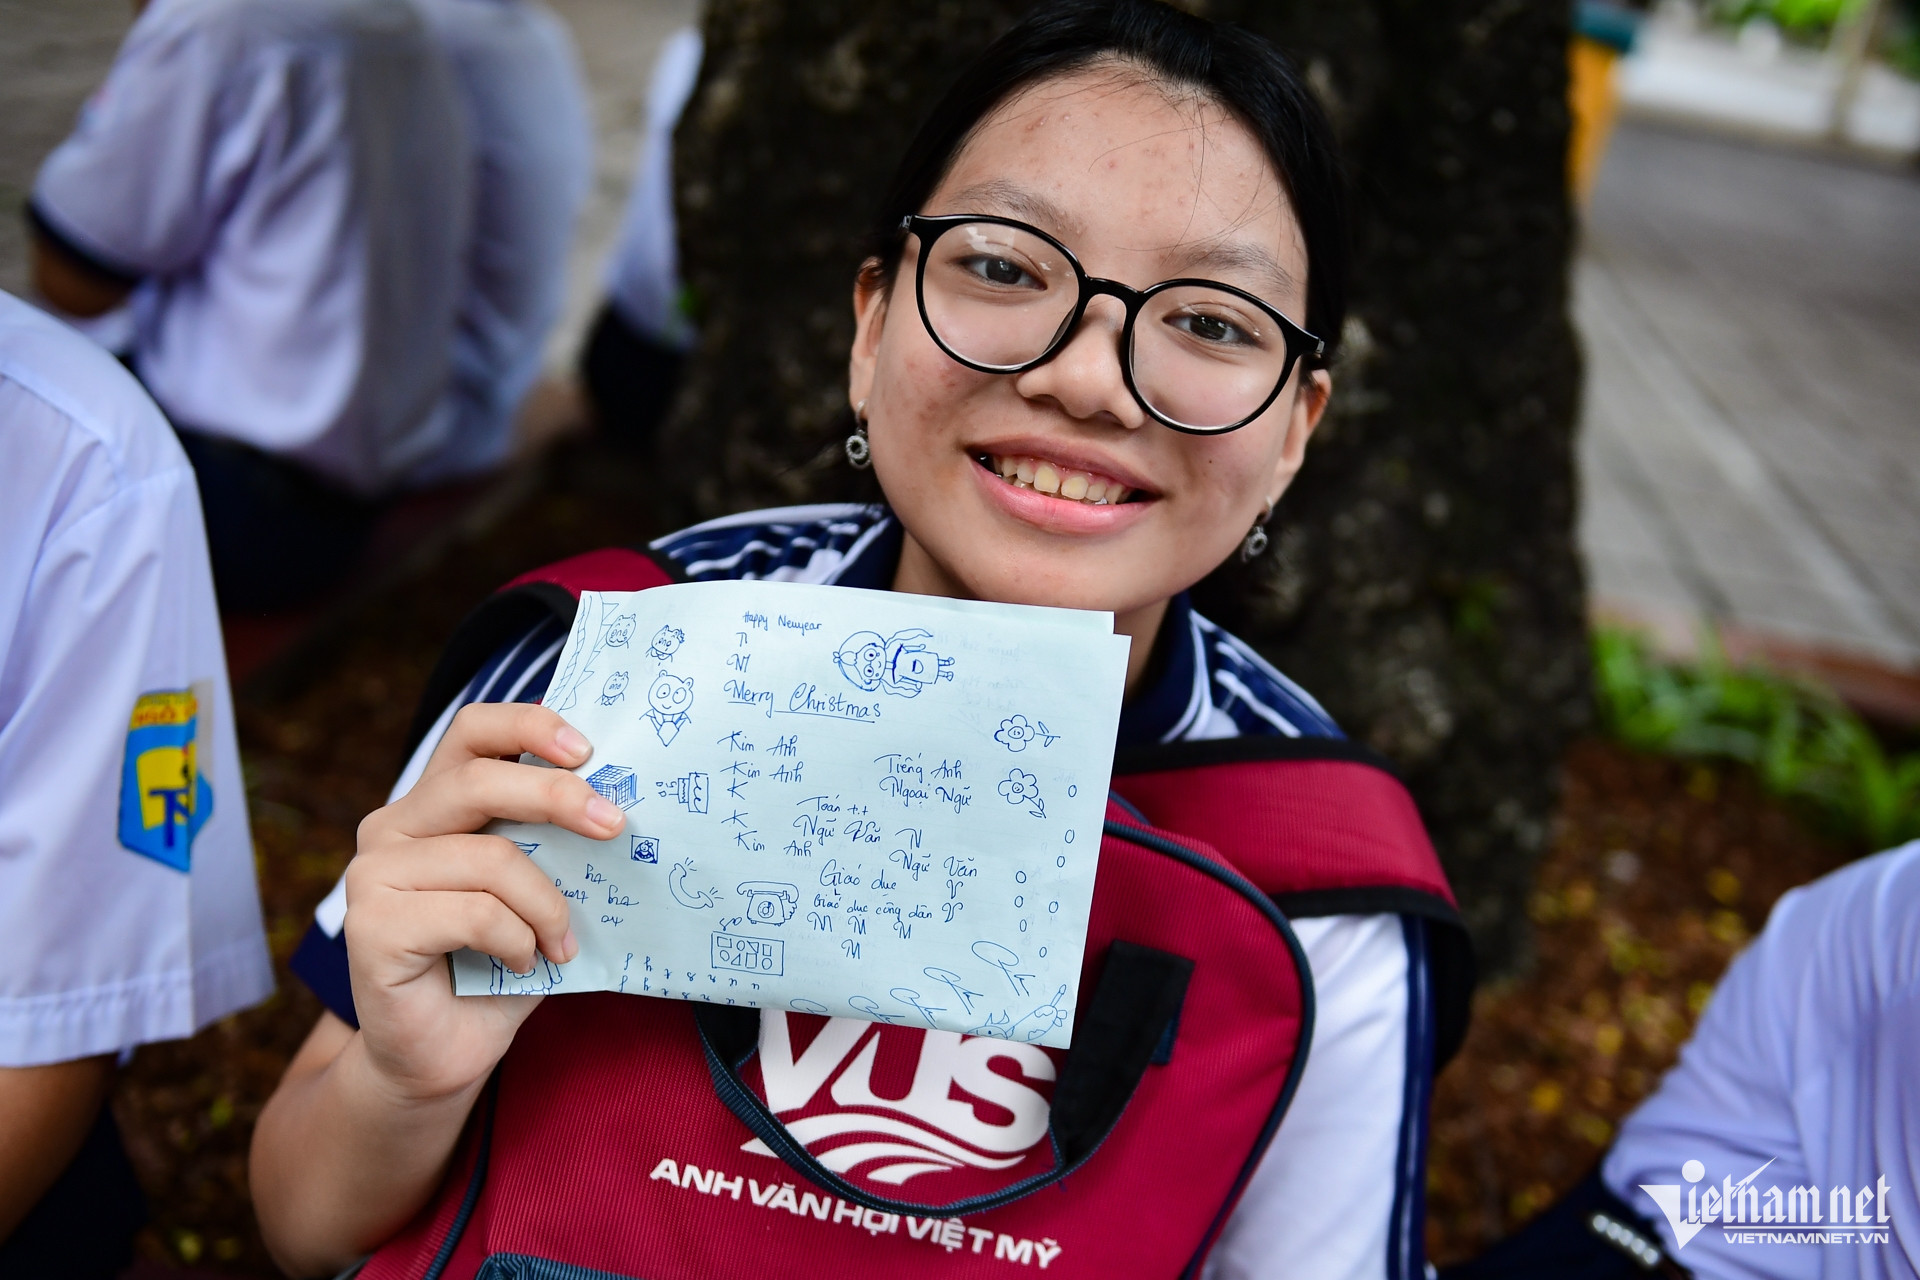 Happy Newyear
N
NI
Merry Christmas
Kim Anh
Kim Anh
Tiếng Anh
K
Ngoại Ngữ
Toán
K
Ngữ Văn N
Kim Anh
Ngữ Văn
Giáo dục V
Giáo dục công dân V
M M M
M
VUS
ANH VĂN HỘI VIỆT MỸ
Vietnamnet
VIETNAMNET.VN